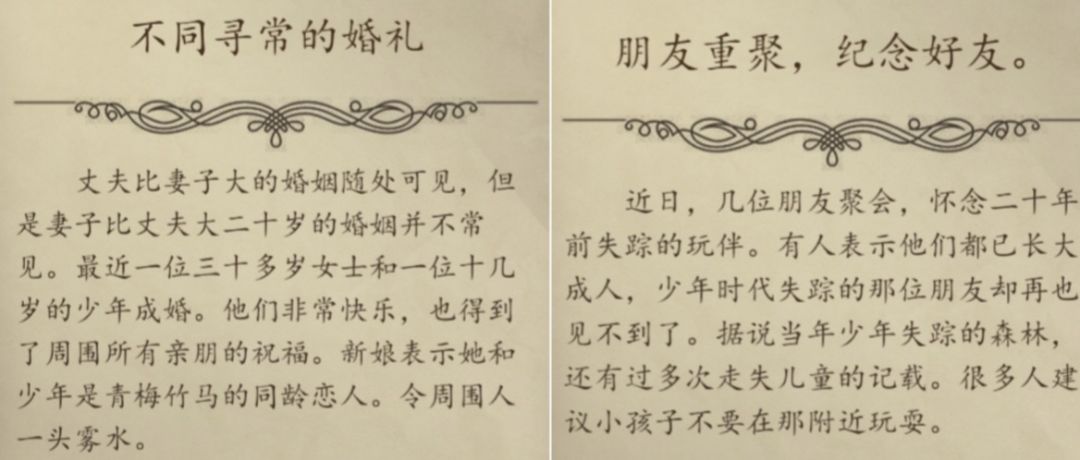 不同寻常的婚礼
丈夫比妻子大的婚姻随处可见，但
是妻子比丈夫大二十岁的婚姻并不常
见。最近一位三十多岁女士和一位十几
岁的少年成婚。他们非常快乐，也得到
了周围所有亲朋的祝福。新娘表示她和
少年是青梅竹马的同龄恋人。令周围人
一头雾水。
朋友重聚，纪念好友。
近日，几位朋友聚会，怀念二十年
前失踪的玩伴。有人表示他们都已长大
成人，少年时代失踪的那位朋友却再也
见不到了。据说当年少年失踪的森林，
还有过多次走失儿童的记载。很多人建
议小孩子不要在那附近玩耍。